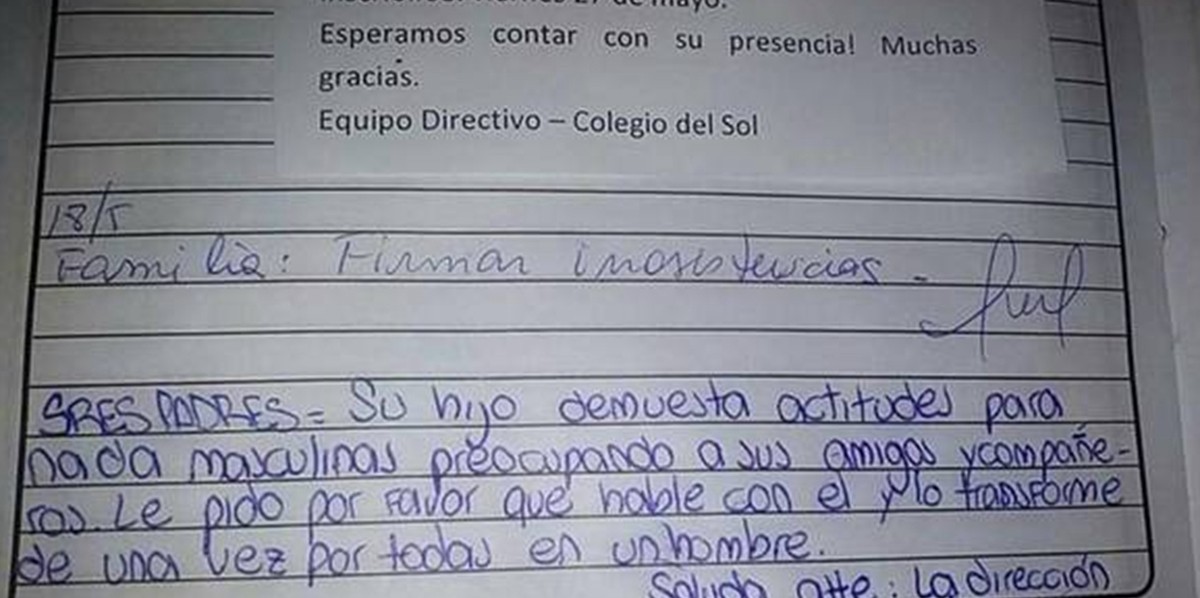 de mayo.
Esperamos contar con su presencia! Muchas
gracias.
Equipo Directivo – Colegio del Sol
18/5
Familia: Firmar inasistencias -
SRES PADRES = Su hijo demuesta actitudes para
nada masculinas preocupando a sus amigas y compañe-
ras. Le pido por favor que hable con el y lo transforme
de una vez por todas en un hombre.
Saluda atte: La dirección